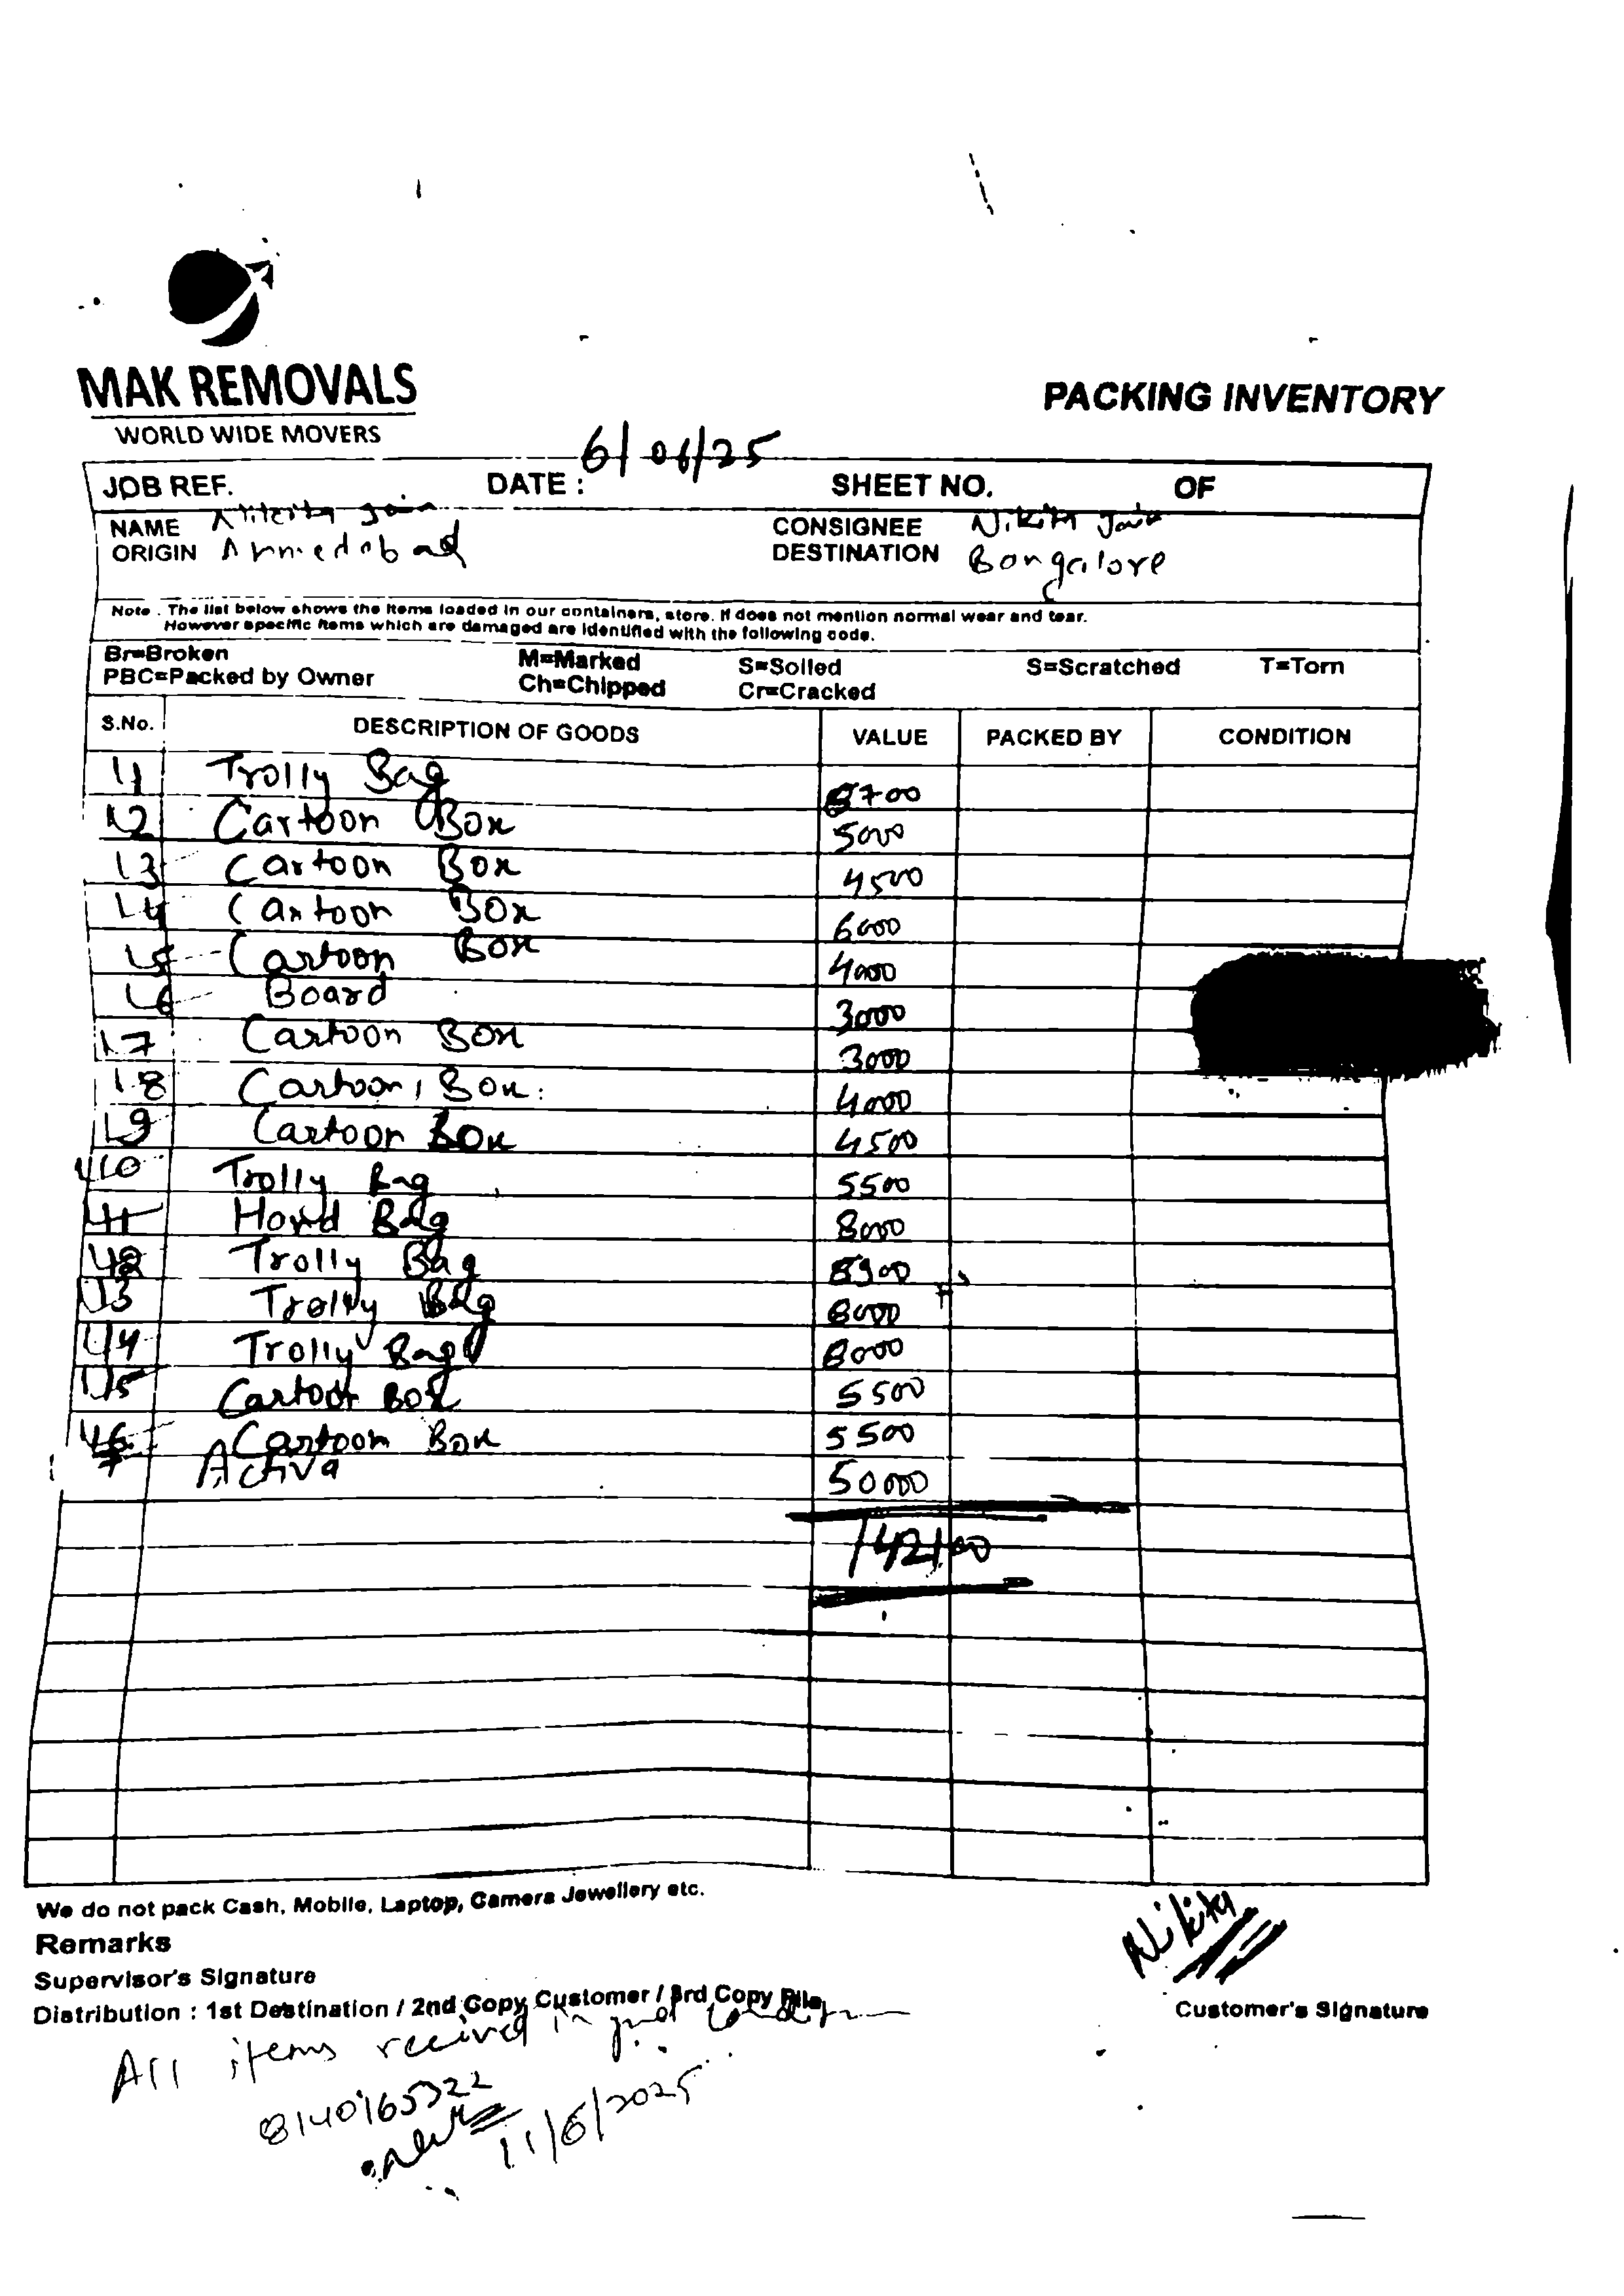 MAK REMOVALS
WORLD WIDE MOVERS
PACKING INVENTORY
JOB REF. DATE : 6/06/25 SHEET NO. OF
NAME Nikita Jain CONSIGNEE Nikita Jain
ORIGIN Ahmedabad DESTINATION Bangalore
Note . The list below shows the items loaded in our containers, store. If does not mention normal wear and tear.
However specific items which are damaged are identified with the following code.
Br=Broken M=Marked S=Soiled S=Scratched T=Torn
PBC=Packed by Owner Ch=Chipped Cr=Cracked
S.No. DESCRIPTION OF GOODS VALUE PACKED BY CONDITION
1/1 Trolly Bag 8700
1/2 Cartoon Box 5000
1/3 Cartoon Box 4500
1/4 Cartoon Box 6000
1/5 Cartoon Box 4000
1/6 Board 3000
1/7 Cartoon Box 3000
1/8 Cartoon Box 4000
1/9 Cartoon Box 4500
1/10 Trolly Bag 5500
1/11 Hand Bag 8000
1/12 Trolly Bag 8900
1/13 Trolly Bag 8000
1/14 Trolly Bag 8000
1/15 Cartoon Box 5500
1/16 Cartoon Box 5500
Activa 50000
142100
We do not pack Cash, Mobile, Laptop, Camera Jewellery etc.
Remarks
Nikita
Supervisor's Signature
Distribution : 1st Destination / 2nd Copy Customer / 3rd Copy File
Customer's Signature
All items recived in good condition
8140165322
11/6/2025